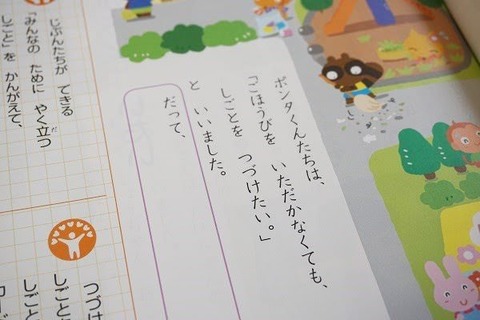 ポンタくんたちは、
「ごほうびを　いただかなくても、
しごとを　つづけたい。」
と　いいました。
だって、
じぶんたちが　できる
「みんなの　ために　やく立つ
しごと」を　かんがえて、
つづけ
しごと
しごと
カード